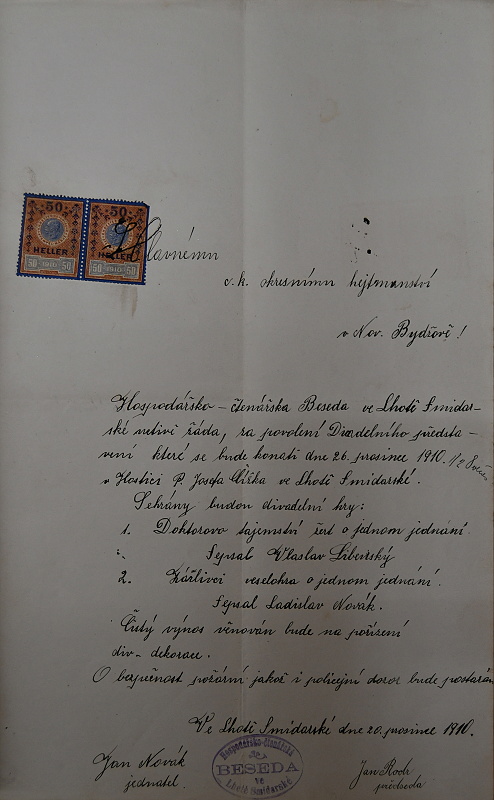 50 50
HELLER HELLER
50 1910 50 50 1910 50
Slavnému
c. k. okresnímu hejtmanství
v Nov. Bydžově!
Hospodářsko-čtenářska Beseda ve Lhotě Smidar-
ské uctivě žádá, za povolení Divadelního předsta-
vení které se bude konati dne 26. prosince 1910. 1/2 8 večer
v Hostinci P. Josefa Čížka ve Lhotě Smidarské.
Sehrány budou divadelní hry:
1. Doktorovo tajemství žert o jednom jednání.
Sepsal Vlaslav Libenský
2. Žárlivci veselohra o jednom jednání.
Sepsal Ladislav Novák.
Čistý výnos věnován bude na pořízení
div-dekorace.
O bezpečnost požární jakož i policejní dozor bude postarán
Ve Lhotě Smidarské dne 20. prosince 1910.
Hospodářsko-čtenářská
BESEDA
ve
Lhotě Smidarské
Jan Novák
jednatel.
Jan
předseda